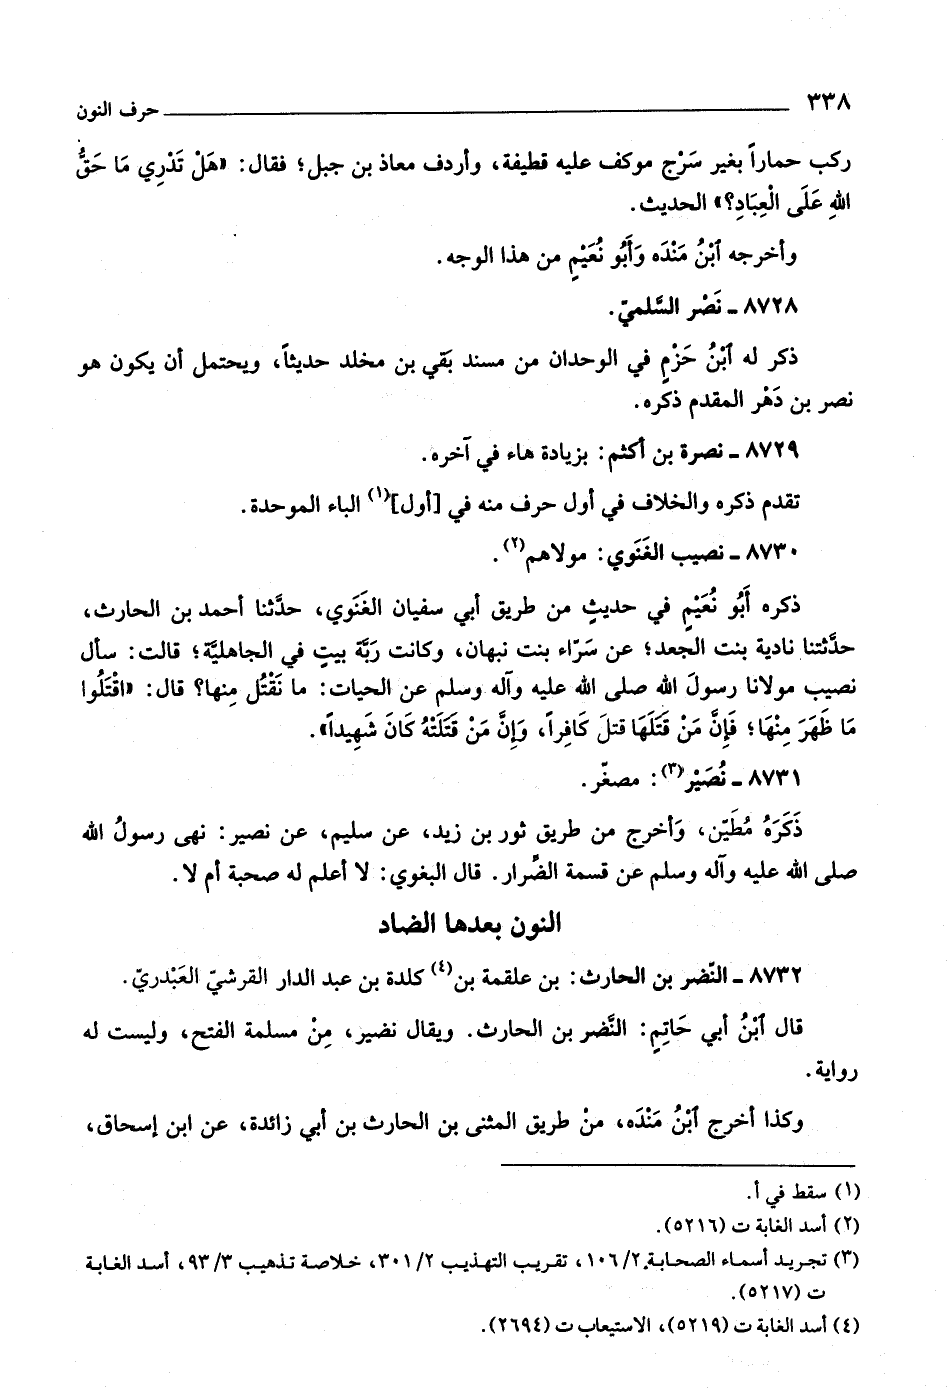 ٣٣٨ حرف النون
ركب حماراً بغير سَرْج موكف عليه قطيفة، وأردف معاذ بن جبل؛ فقال: «هَلْ تَدْرِي مَا حَقُّ
اللهِ عَلَى الْعِبَادِ؟» الحديث.
وأخرجه ٱبْنُ مَنْدَه وَأَبُو نُعَيْمٍ من هذا الوجه.
٨٧٢٨ ـ نَصْر السَّلميّ.
ذكر له ٱبْنُ حَزْمٍ في الوحدان من مسند بَقي بن مخلد حديثاً، ويحتمل أن يكون هو
نصر بن دَهْر المقدم ذكره.
٨٧٢٩ ـ نصرة بن أكثم: بزيادة هاء في آخره.
تقدم ذكره والخلاف في أول حرف منه في [أول](١) الباء الموحدة.
٨٧٣٠ ـ نصيب الغَنَوي: مولاهم(٢).
ذكره أَبُو نُعَيْمٍ في حديثٍ من طريق أبي سفيان الغَنَوي، حدَّثنا أحمد بن الحارث،
حدَّثتنا نادية بنت الجعد؛ عن سَرّاء بنت نبهان، وكانت رَبَّة بيتٍ في الجاهليَّة؛ قالت: سأل
نصيب مولانا رسولَ الله صلى الله عليه وآله وسلم عن الحيات: ما نَقْتُل مِنها؟ قال: «اقْتَلُوا
مَا ظَهَرَ مِنْهَا؛ فَإِنَّ مَنْ قَتَلَهَا قتلَ كَافِراً، وَإِنَّ مَنْ قَتَلَتْهُ كَانَ شَهِيداً».
٨٧٣١ ـ نُصَيْر(٣): مصغّر.
ذَكَرَهُ مُطَيّن، وَأخرج من طريق ثور بن زيد، عن سليم، عن نصير: نهى رسولُ الله
صلى الله عليه وآله وسلم عن قسمة الضِّرار. قال البغوي: لا أعلم له صحبة أم لا.
النون بعدها الضاد
٨٧٣٢ ـ النّضر بن الحارث: بن علقمة بن(٤) كلدة بن عبد الدار القرشيّ العَبْدريّ.
قال ٱبْنُ أبي حَاتِمٍ: النَّضر بن الحارث. ويقال نضير، مِنْ مسلمة الفتح، وليست له
رواية.
وكذا أخرج ٱبْنُ مَنْدَه، منْ طريق المثنى بن الحارث بن أبي زائدة، عن ابن إسحاق،
(١) سقط في أ.
(٢) أسد الغابة ت (٥٢١٦).
(٣) تجريد أسماء الصحابة ١٠٦/٢، تقريب التهذيب ٣٠١/٢، خلاصة تذهيب ٩٣/٣، أسد الغابة
ت (٥٢١٧).
(٤) أسد الغابة ت (٥٢١٩)، الاستيعاب ت (٢٦٩٤).